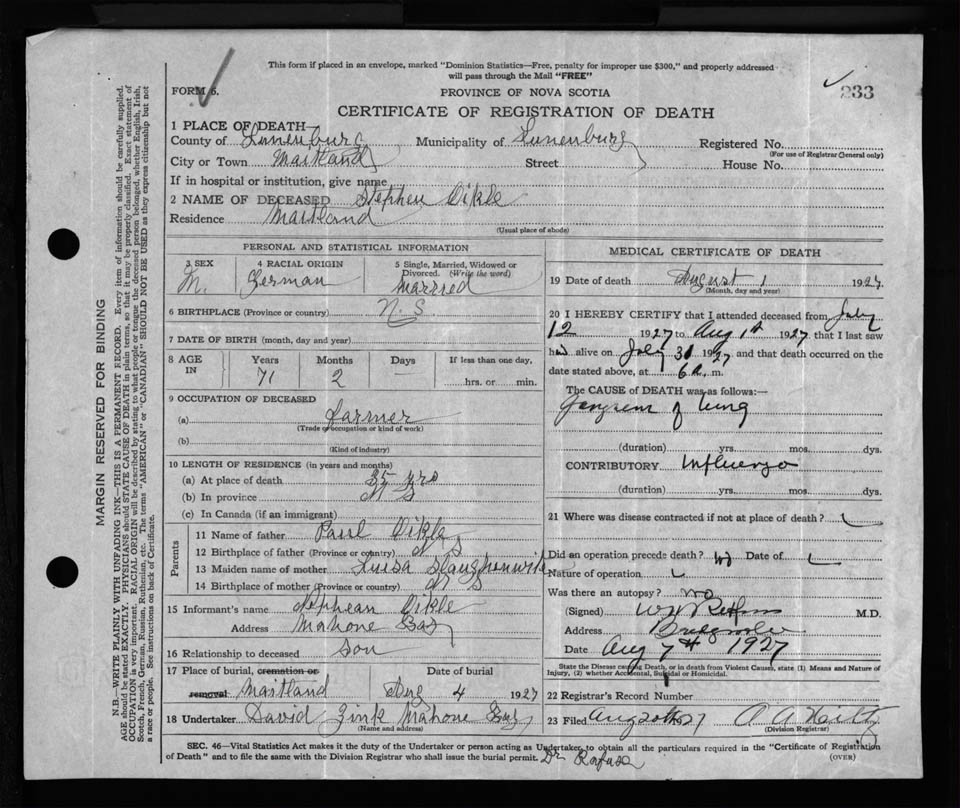 This form if placed in an envelope, marked "Dominion Statistics—Free, penalty for improper use $300," and properly addressed
will pass through the Mail "FREE"
FORM 6.
PROVINCE OF NOVA SCOTIA
233
CERTIFICATE OF REGISTRATION OF DEATH
1 PLACE OF DEATH—
County of Lunenburg Municipality of Lunenburg Registered No.
(For use of Registrar General only)
City or Town Maitland Street House No.
If in hospital or institution, give name
2 NAME OF DECEASED Stephen Eikle
Residence Maitland
(Usual place of abode)
PERSONAL AND STATISTICAL INFORMATION
3 SEX 4 RACIAL ORIGIN 5 Single, Married, Widowed or
Divorced. (Write the word)
M. German Married
6 BIRTHPLACE (Province or country) N.S.
7 DATE OF BIRTH (month, day and year)
8 AGE IN Years Months Days If less than one day,
71 2 — hrs. or min.
9 OCCUPATION OF DECEASED
(a) farmer
(Trade or occupation or kind of work)
(b)
(Kind of industry)
10 LENGTH OF RESIDENCE (in years and months)
(a) At place of death 35 yrs
(b) In province N S
(c) In Canada (if an immigrant)
Parents
11 Name of father Paul Eikle
12 Birthplace of father (Province or country) N S
13 Maiden name of mother Luisa
14 Birthplace of mother (Province or country) N S
15 Informant's name Stephean Eikle
Address Mahone Bay
16 Relationship to deceased Son
17 Place of burial, cremation or Date of burial
removal Maitland Aug 4 1927
18 Undertaker David Zink Mahone Bay
(Name and address)
MEDICAL CERTIFICATE OF DEATH
19 Date of death August 1 1927
(Month, day and year)
20 I HEREBY CERTIFY that I attended deceased from July
12 1927 to Aug 1st 1927 that I last saw
him alive on July 31 1927 and that death occurred on the
date stated above, at 6 a. m.
The CAUSE OF DEATH was as follows:—
Gangrene of lung
(duration) yrs. mos. dys.
CONTRIBUTORY Influenza
(duration) yrs. mos. dys.
21 Where was disease contracted if not at place of death?
Did an operation precede death? No Date of
Nature of operation
Was there an autopsy? no
(Signed) M.D.
Address Bridgewater
Date Aug 7th 1927
State the Disease causing Death, or in death from Violent Causes, state (1) Means and Nature of
Injury, (2) whether Accidental, Suicidal or Homicidal.
22 Registrar's Record Number
23 Filed Aug 20th 27
(Division Registrar)
SEC. 46—Vital Statistics Act makes it the duty of the Undertaker or person acting as Undertaker, to obtain all the particulars required in the "Certificate of Registration
of Death" and to file the same with the Division Registrar who shall issue the burial permit. (OVER)
Dr Rafuse
MARGIN RESERVED FOR BINDING
N.B.—WRITE PLAINLY WITH UNFADING INK—THIS IS A PERMANENT RECORD. Every item of information should be carefully supplied.
AGE should be stated EXACTLY. PHYSICIANS should STATE CAUSE OF DEATH in plain terms, so that it may be properly classified. Exact statement of
OCCUPATION is very important. RACIAL ORIGIN will be described by stating to what people or tongue the deceased person belonged, whether English, Irish,
Scotch, French, German, Russian, Ruthenian, etc. The terms "AMERICAN" or "CANADIAN" SHOULD NOT BE USED as they express citizenship but not
a race or people. See instructions on back of Certificate.